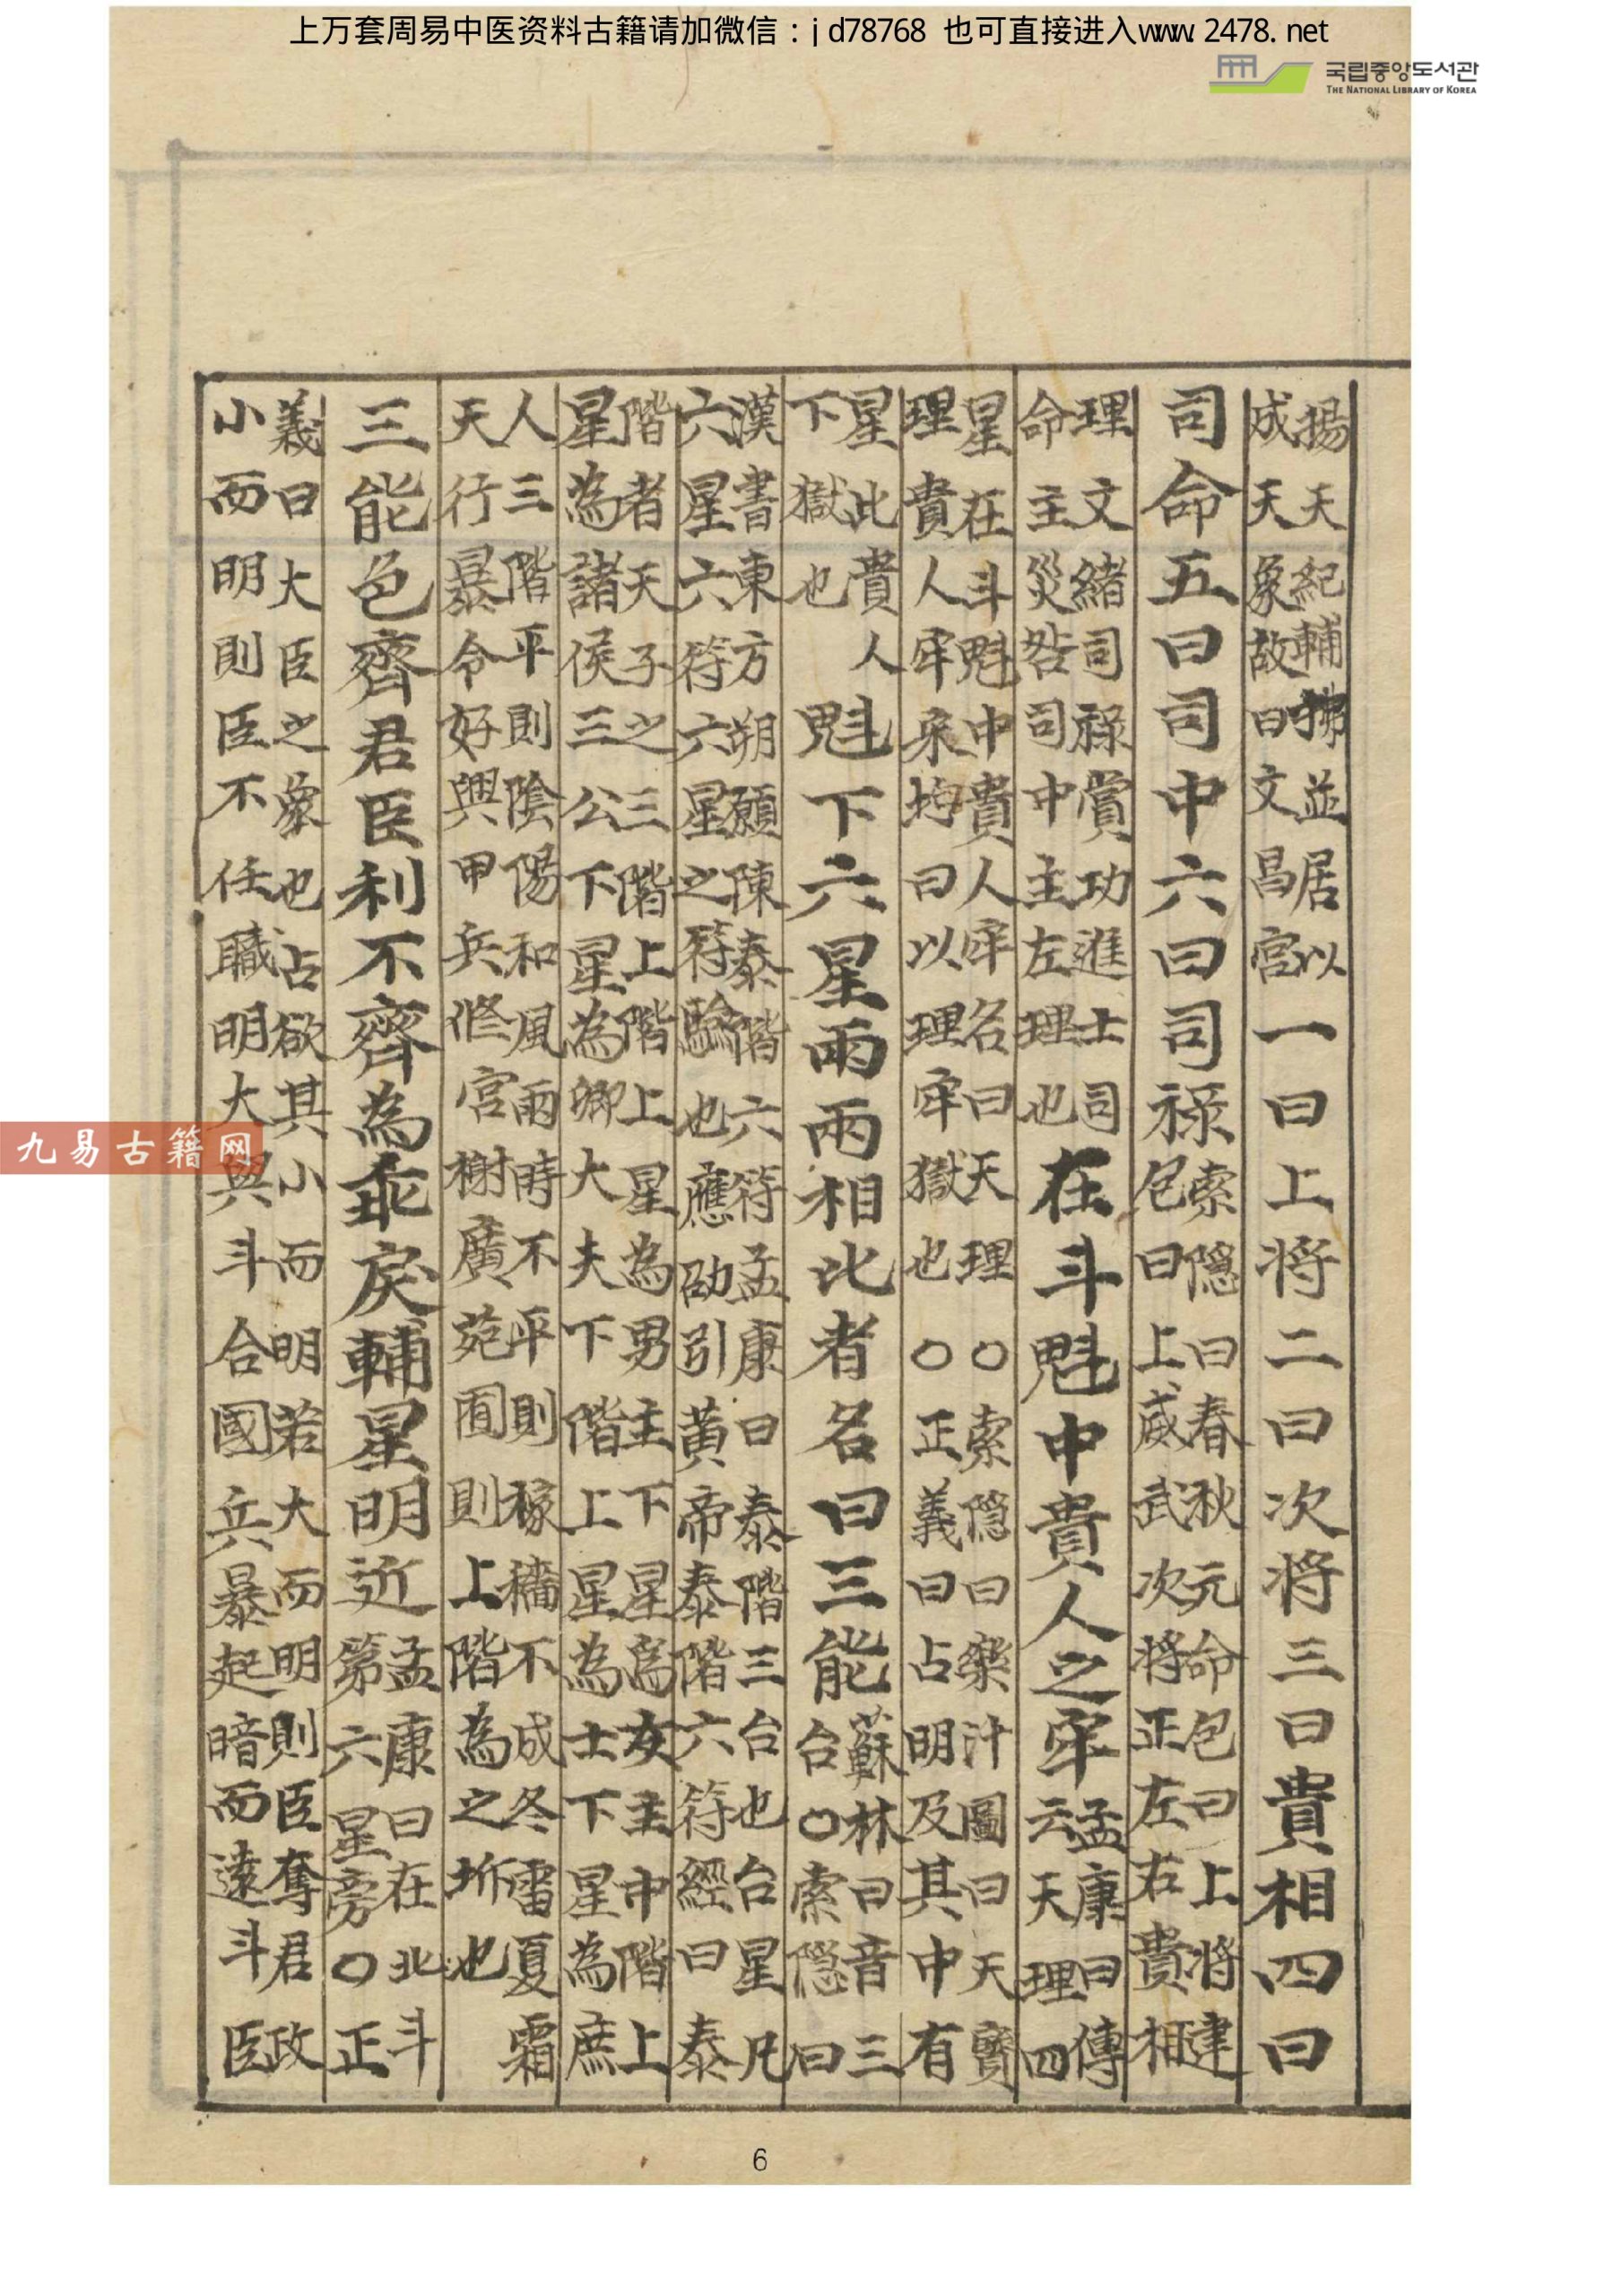 上万套周易中医资料古籍请加微信：jd78768 也可直接进入www.2478.net
국립중앙도서관
THE NATIONAL LIBRARY OF KOREA
揚天紀輔拂並居以
成天象故曰文昌宮
一曰上将二曰次将三曰貴相四曰
司命五曰司中六曰司禄
索隠曰春秋元命包曰上将建
包曰上威武次将正左右貴相
理文緒司祿賞功進士司
命主災咎司中主左理也
在斗魁中貴人之牢
孟康曰傳
云天理四
星在斗魁中貴人牢名曰天理○索隠曰楽汁圖曰天寳
理貴人牢宋均曰以理牢獄也○正義曰占明及其中有
星此貴人
下獄也
魁下六星兩兩相比者名曰三能
蘇林曰音三
台○索隠曰
漢書東方朔願陳泰階六符孟康曰泰階三台也台星凡
六星六符六星之符驗也應劭引黄帝泰階六符經曰泰
階者天子之三階上階上星為男主下星為女主中階上
星為諸侯三公下星為卿大夫下階上星為士下星為庶
人三階平則陰陽和風雨時不平則稼穡不成冬雷夏霜
天行暴令好興甲兵修宮榭廣苑囿則上階為之坼也
三能色齊君臣利不齊為乖戾輔星明近
孟康曰在北斗
第六星旁○正
義曰大臣之象也占欲其小而明若大而明則臣奪君政
小而明則臣不任職明大與斗合國兵暴起暗而遠斗臣
九易古籍网
6